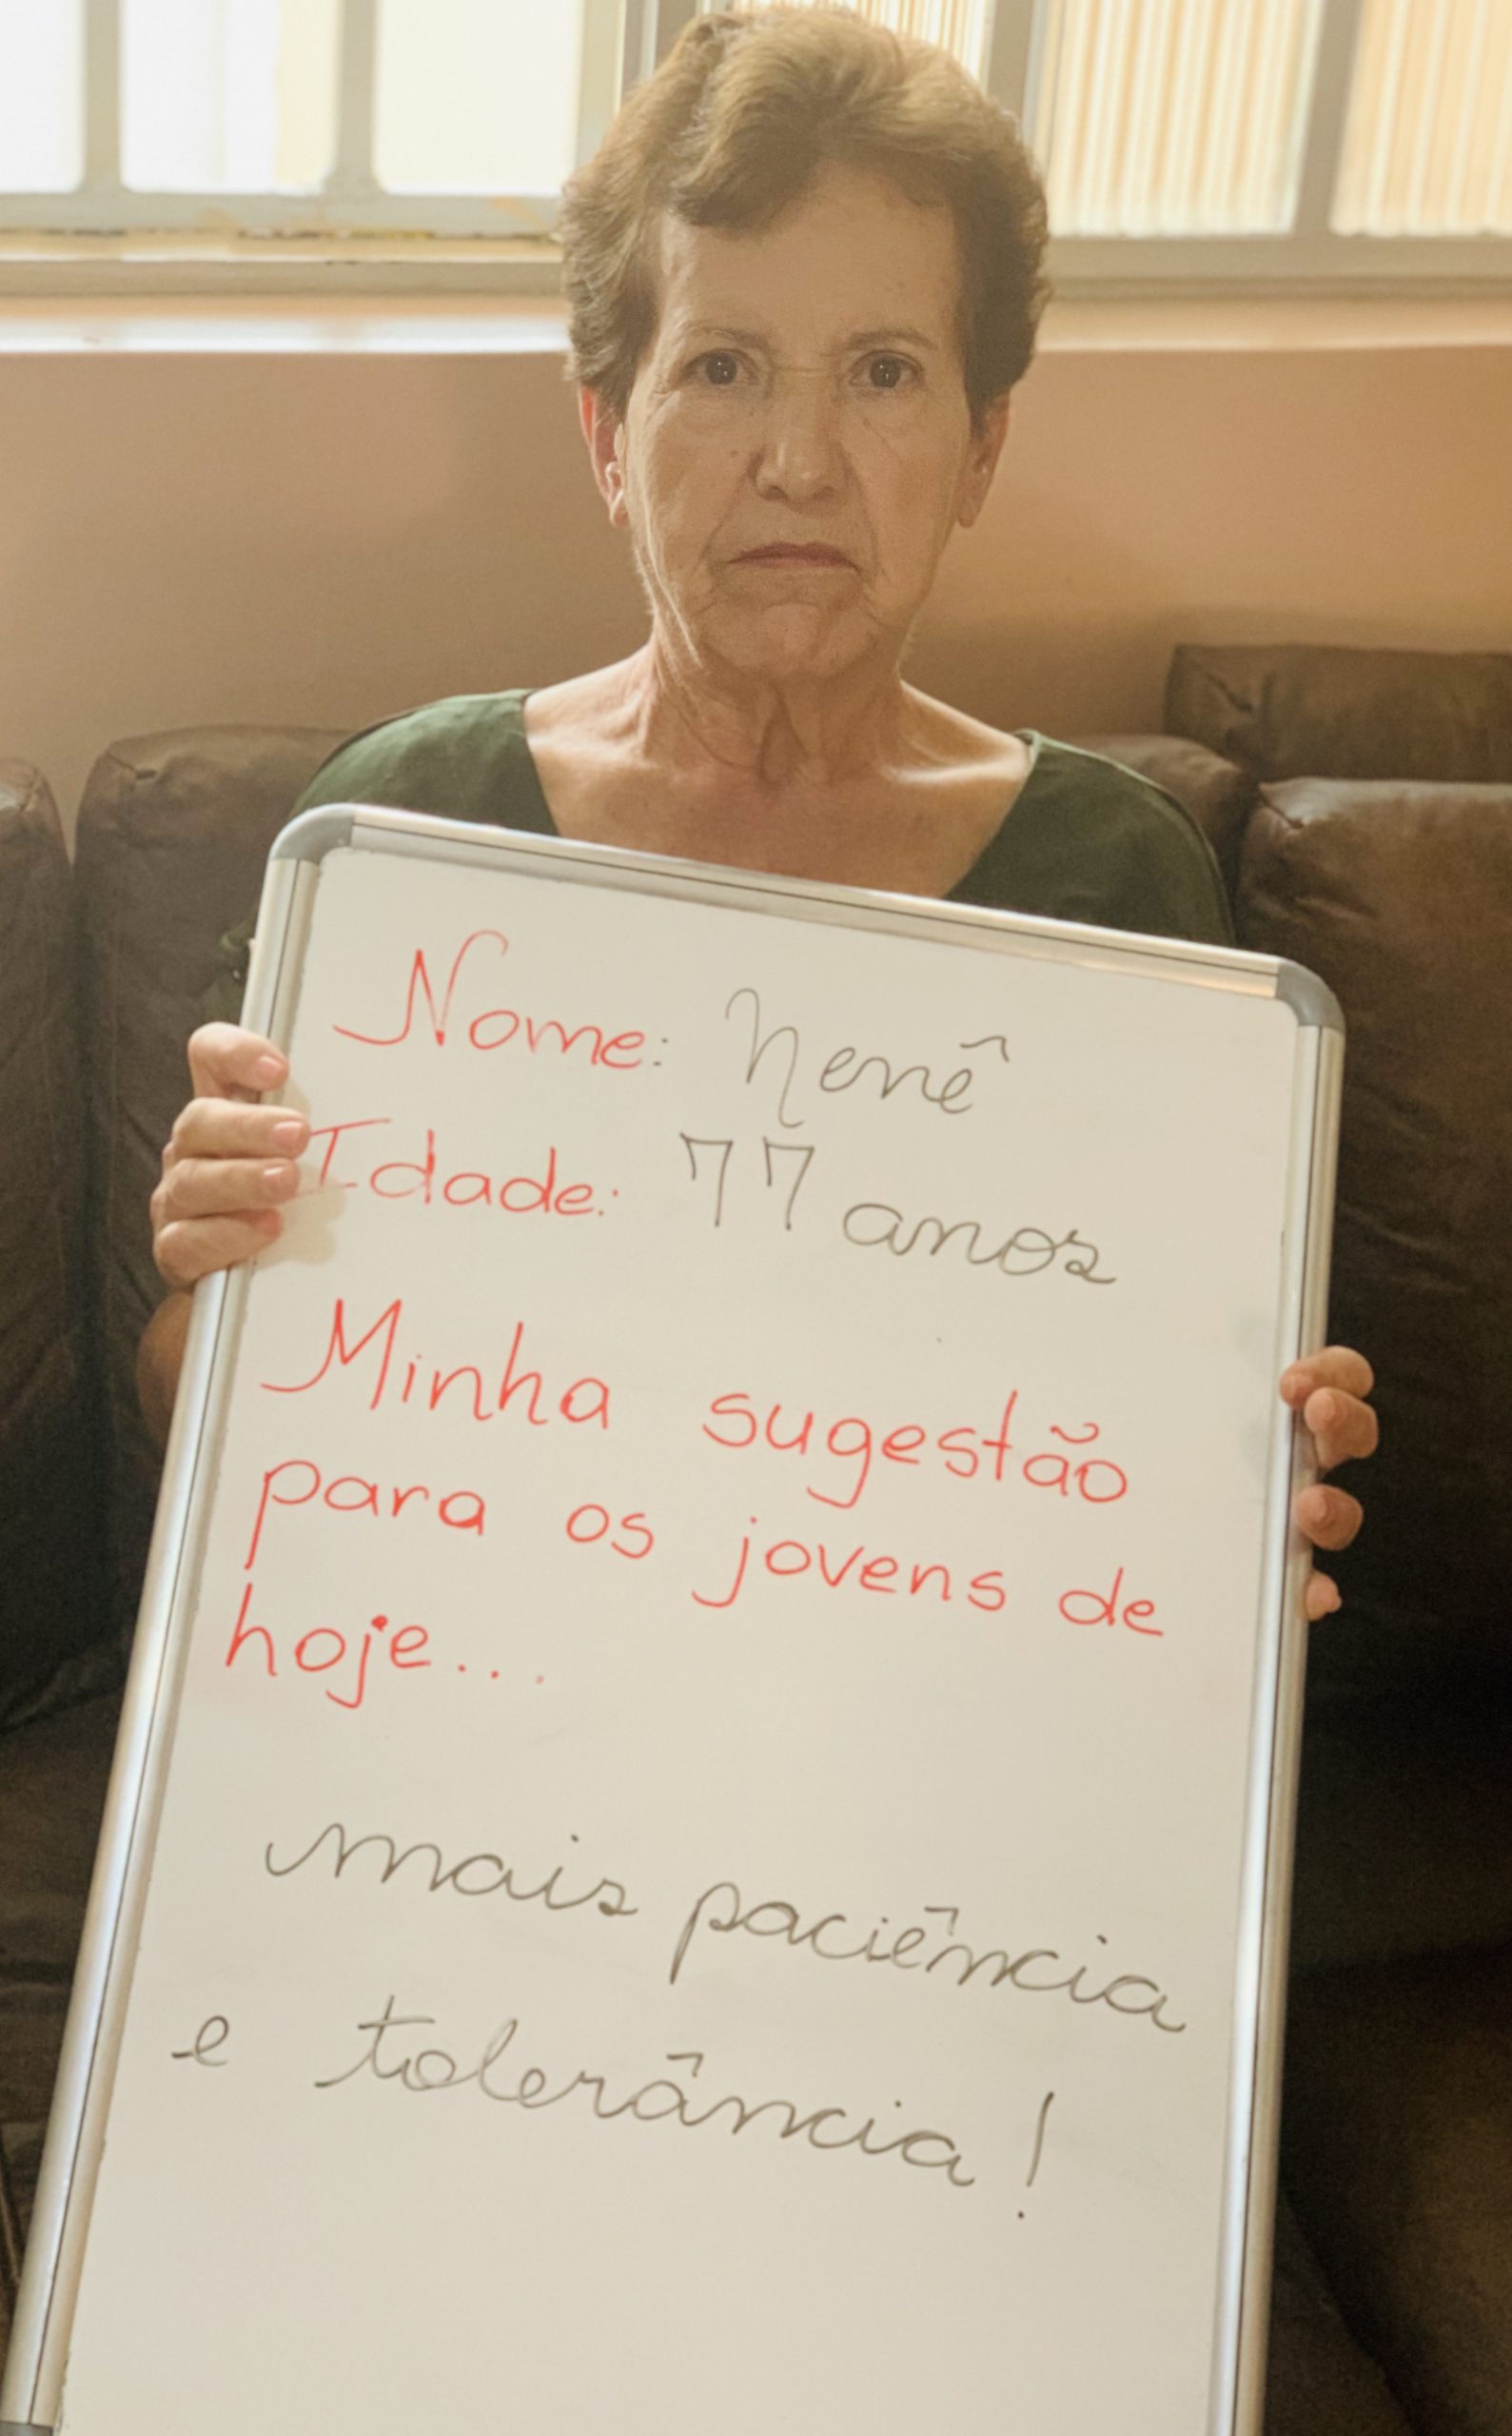 Nome: Nenê
Idade: 77 anos
Minha sugestão
para os jovens de
hoje...
mais paciência
e tolerância!